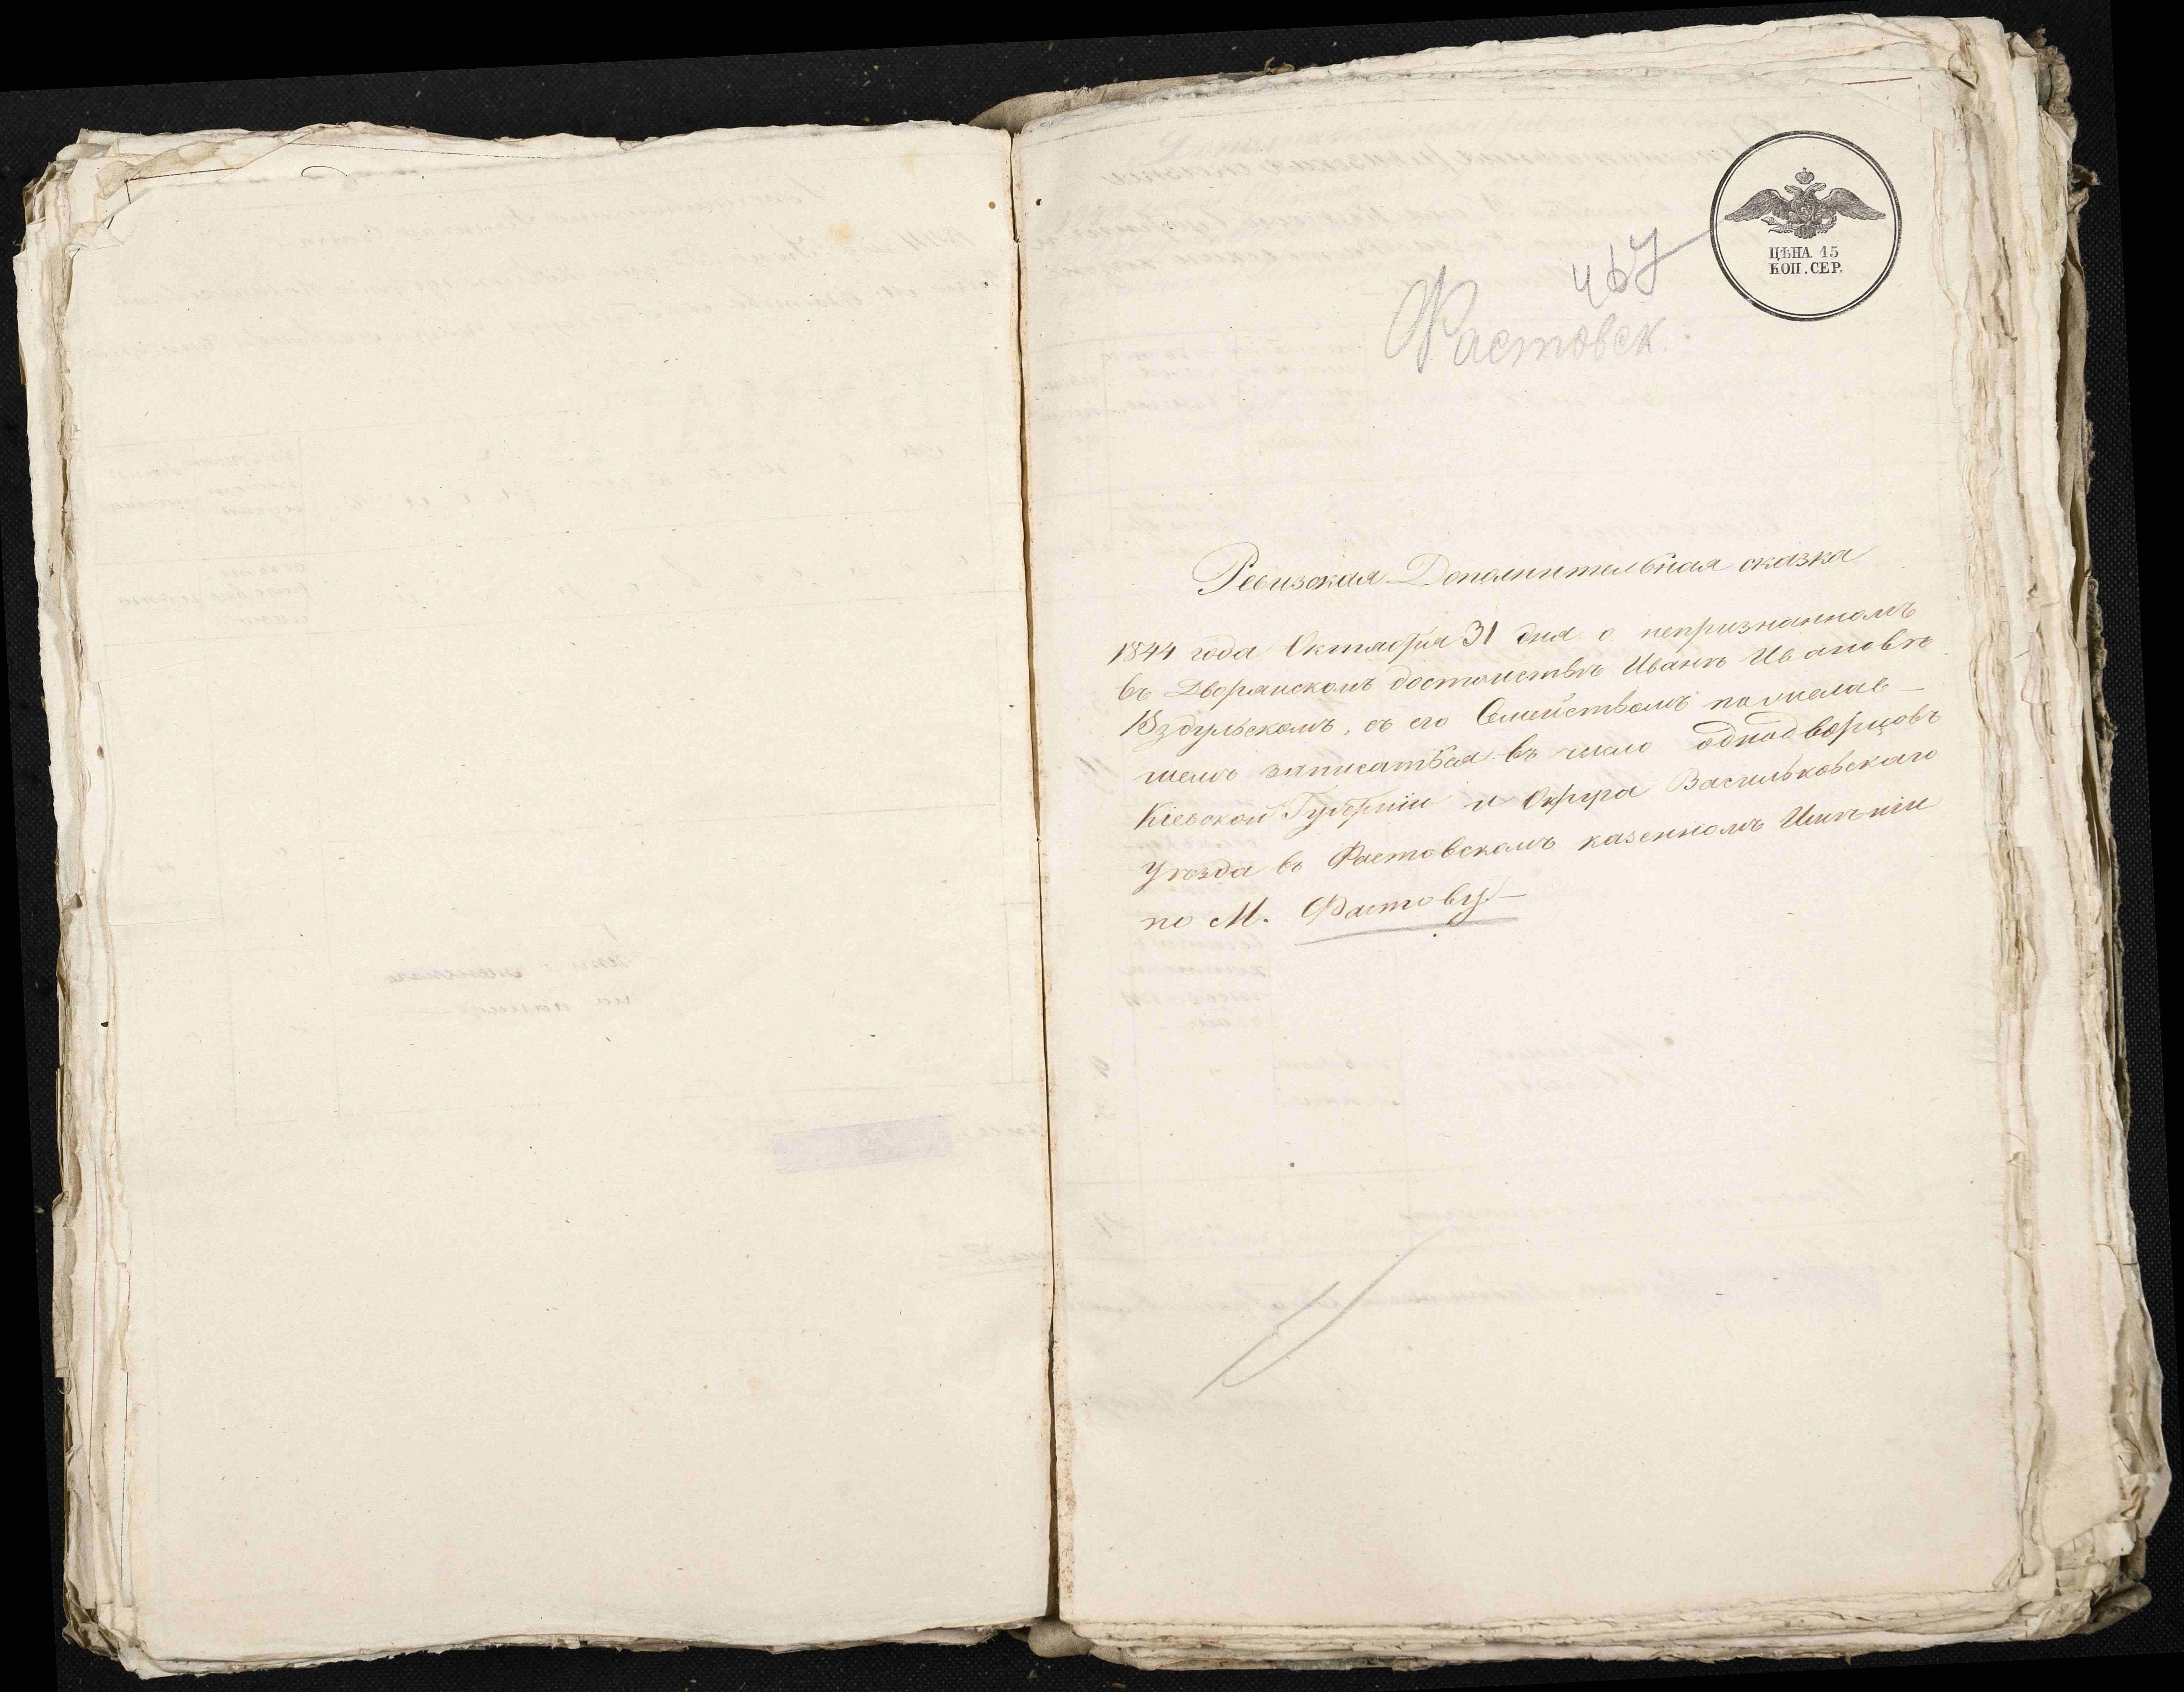 ЦѢНА 15
КОП. СЕР.
467
Фастовск.
Ревизская Дополнительная сказка
1844 года Октября 31 дня о непризнанномъ
въ Дворянскомъ достоинствѣ Иванѣ Ивановѣ
Вздульскомъ, съ его Семействомъ пожелав-
шемъ записаться въ число однодворцовъ
Кіевской Губерніи и Округа Васильковскаго
уѣзда въ Фастовскомъ казенномъ Имѣніи
по М. Фастову